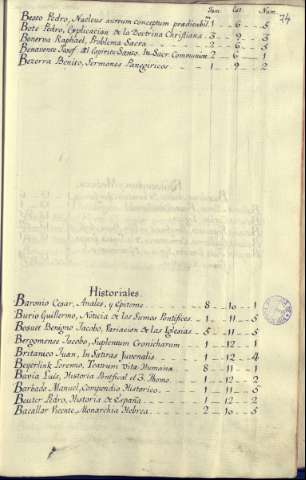 Tom. Est. Num. 74
Besto Pedro, Nucleus aureum conceptum predicabil. 1 - 6 - 5
Bote Pedro, Explicacion de la Doctrina Christiana. 3 - 9 - 3
Bonerva Raphael, Problema Sacra 2 - 6 - 5
Benavente Josef del Espiritu Santo, In Sacr. Communium 2 - 6 - 1
Bezerra Benito, Sermones Panegiricos 1 - 9 - 2
Historiales.
Baronio Cesar, Anales, y Epitome 8 - 10 - 1
Burio Guillermo, Noticia de los Sumos Pontifices 1 - 11 - 5
Bosuet Benigno Jacobo, Variacion de las Iglesias 5 - 11 - 5
Bergomenses Jacobo, Suplemum Cronicharum 1 - 12 - 1
Britanico Juan, In Satiras Juvenalis 1 - 12 - 4
Beyerlink Loremo, Teatrum Vita Humana 8 - 11 - 1
Bavia Luis, Historia Pontifical el 3. Thomo 1 - 12 - 2
Barbado Manuel, Compendio Historico 1 - 11 - 5
Beuter Pedro, Historia de España 1 - 12 - 2
Bacallar Vicente, Monarchia Hebrea 2 - 10 - 5